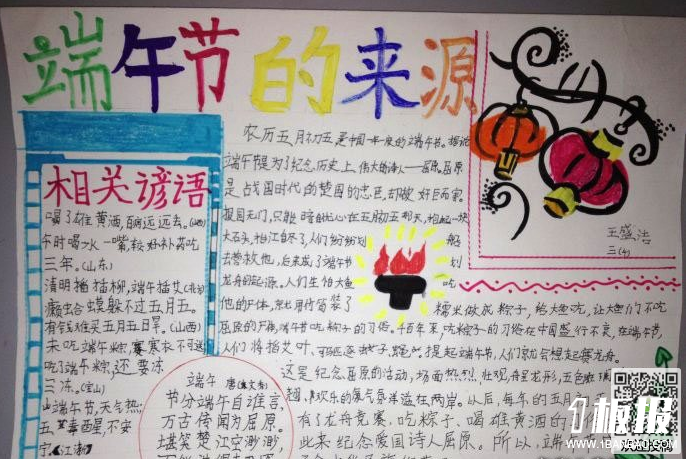 端午节的来源
相关谚语
喝了雄黄酒,百病远远去。(山西)
午时喝水一嘴,较好补药吃
三年。(山东)
清明插柳,端午插艾
癞蛤蟆躲不过五月五。
有钱难买五月五日旱。(山西)
未吃端午粽,寒衣不可送
吃了端午粽,还要冻
三冻。
端午节,天气热
五毒醒,不安
宁
端午
节分端午自谁言,
万古传闻为屈原。
堪笑楚江空渺渺,
农历五月初五是中国一年一度的端午节。据说
端午节是为了纪念历史上伟大的诗人——屈原。屈原
是战国时代的楚国的忠臣,却被奸臣
报国无门,只能暗自忧心在五月初五那天,抱起一块
大石头,投江自尽了,人们纷纷划船
去营救他。后来成了端午节划
龙舟的起源。人们生怕大鱼吃
他的尸体,就用竹筒装了糯米做成粽子,给大鱼吃,让大鱼们不吃
屈原的尸体,端午节吃粽子的习俗。千百年来,吃粽子的习俗在中国盛行不衰,在端午节,
人们将插艾叶、提起端午节,人们就会想起赛龙舟。
这是纪念屈原的活动,场面热烈、壮观,呈龙形,五色
欢乐的气氛洋溢在两岸。从后,每年的五月
有了龙舟竞赛、吃粽子、喝雄黄酒的
此来纪念爱国诗人屈原。所以,端
王盛浩
三(4)
1板报
WWW.1BANBAO.COM
欢迎投稿